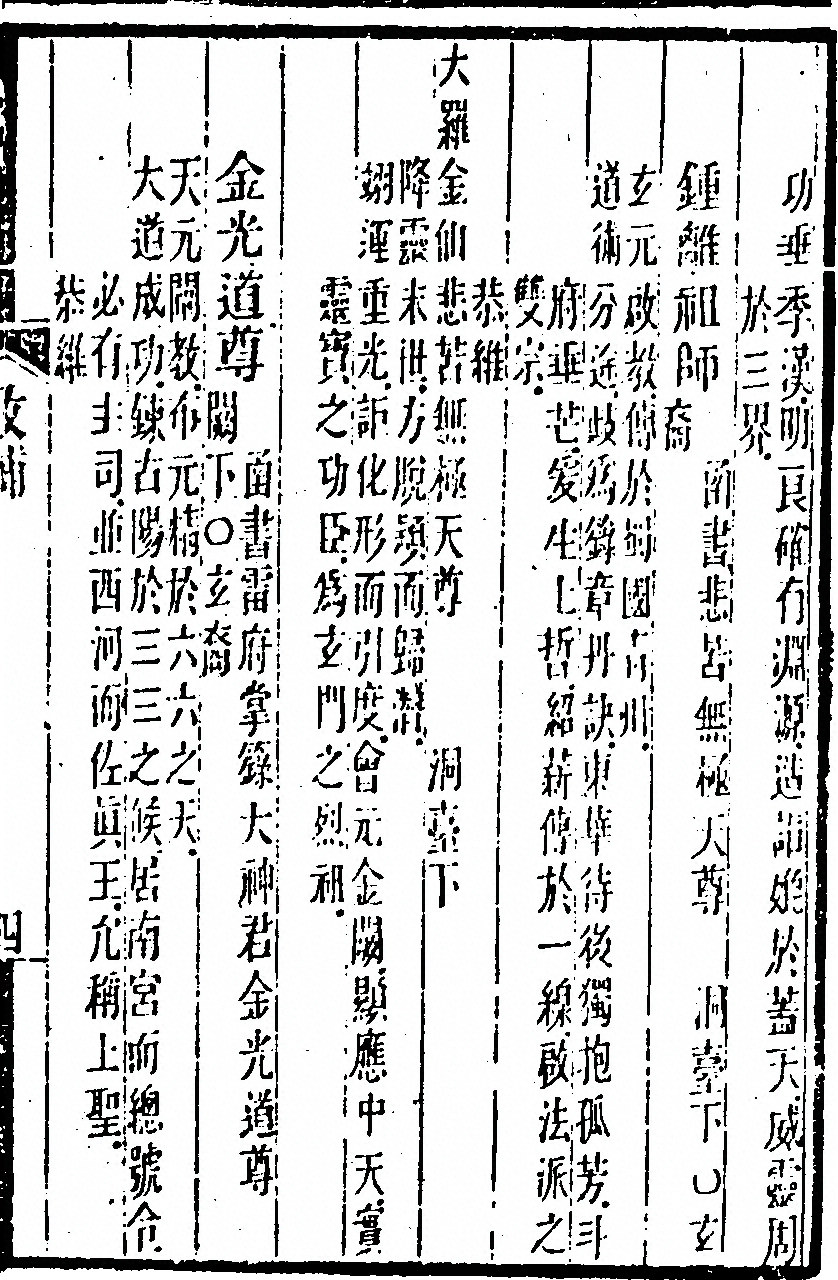 功垂季漢明良確有淵源造詣始於蓋天威靈周
於三界
鍾離祖師 函書悲苦無極天尊 洞臺下〇玄
裔
玄元啟教傳於蜀國青州
道術分途歧爲錦章丹訣東華待後獨抱孤芳斗
府垂芒爰生上哲紹薪傳於一線啟法派之
雙宗
恭維
大羅金仙悲苦無極天尊 洞臺下
降靈末世方脫穎而歸
翊運重光詎化形而引度會元金闕顯應中天實
靈寶之功臣爲玄門之烈祖
金光道尊 函書雷府掌籙大神君金光道尊
闕下〇玄裔
天元闡教布元精於六六之天
大道成功鍊古陽於三三之候居南宮而總號令
必有主司並西河而佐眞王允稱上聖
恭維
四